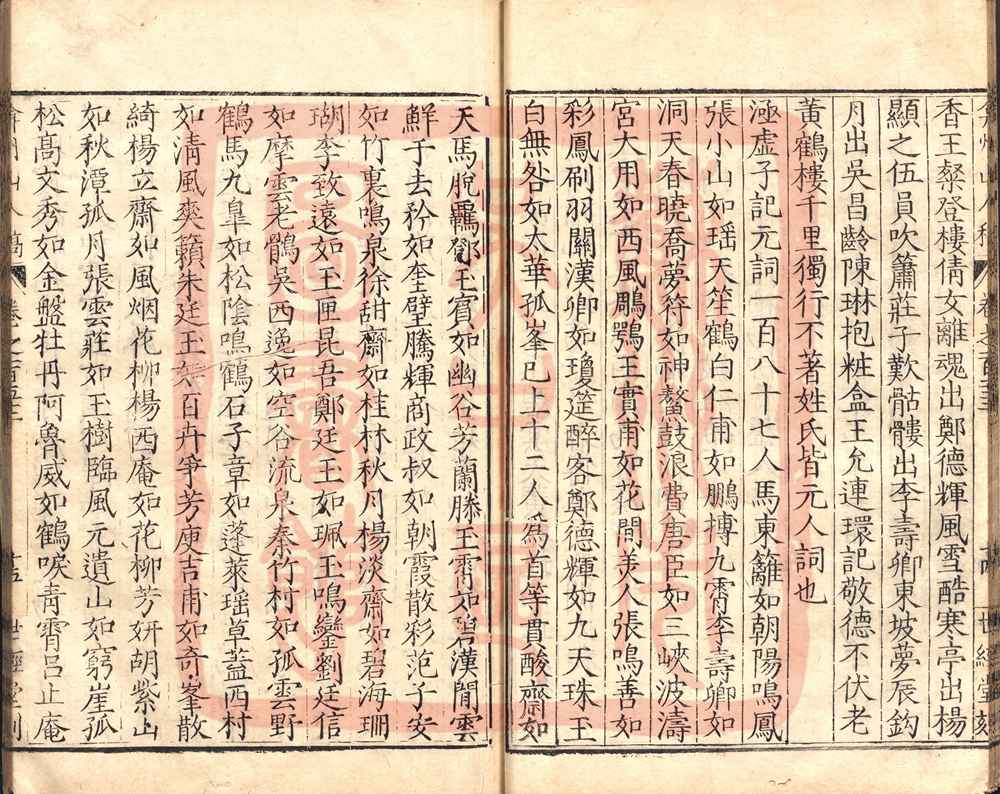 香王粲登樓倩女離魂出鄭德輝風雪酷寒亭出楊
顯之伍員吹簫莊子歎骷髏出李壽卿東坡夢辰鈎
月出吳昌齡陳琳抱粧盒王允連環記敬德不伏老
黃鶴樓千里獨行不著姓氏皆元人詞也
涵虚子記元詞一百八十七人馬東籬如朝陽鳴鳳
張小山如瑶天笙鶴白仁甫如鵬摶九霄李壽卿如
洞天春曉喬夢符如神鰲鼓浪費唐臣如三峽波濤
宮大用如西風鵰鶚王實甫如花間美人張鳴善如
彩鳳刷羽關漢卿如瓊筵醉客鄭德輝如九天珠玉
白無咎如太華孤峯已上十二人爲首等貫酸齋如
天馬脫羈鄧玉賓如幽谷芳蘭滕玉霄如碧漢閒雲
鮮于去矜如奎壁騰輝商政叔如朝霞散彩范子安
如竹裏鳴泉徐甜齋如桂林秋月楊淡齋如碧海珊
瑚李致遠如玉匣昆吾鄭廷玉如珮玉鳴鑾劉廷信
如摩雲老鶻吳西逸如空谷流泉秦竹村如孤雲野
鶴馬九皐如松陰鳴鶴石子章如蓬萊瑶草蓋西村
如清風爽籟朱廷玉如百卉爭芳庾吉甫如奇峯散
綺楊立齋如風烟花柳楊西庵如花柳芳妍胡紫山
如秋潭孤月張雲莊如玉樹臨風元遺山如窮崖孤
松高文秀如金盤牡丹阿魯威如鶴唳青霄呂止庵